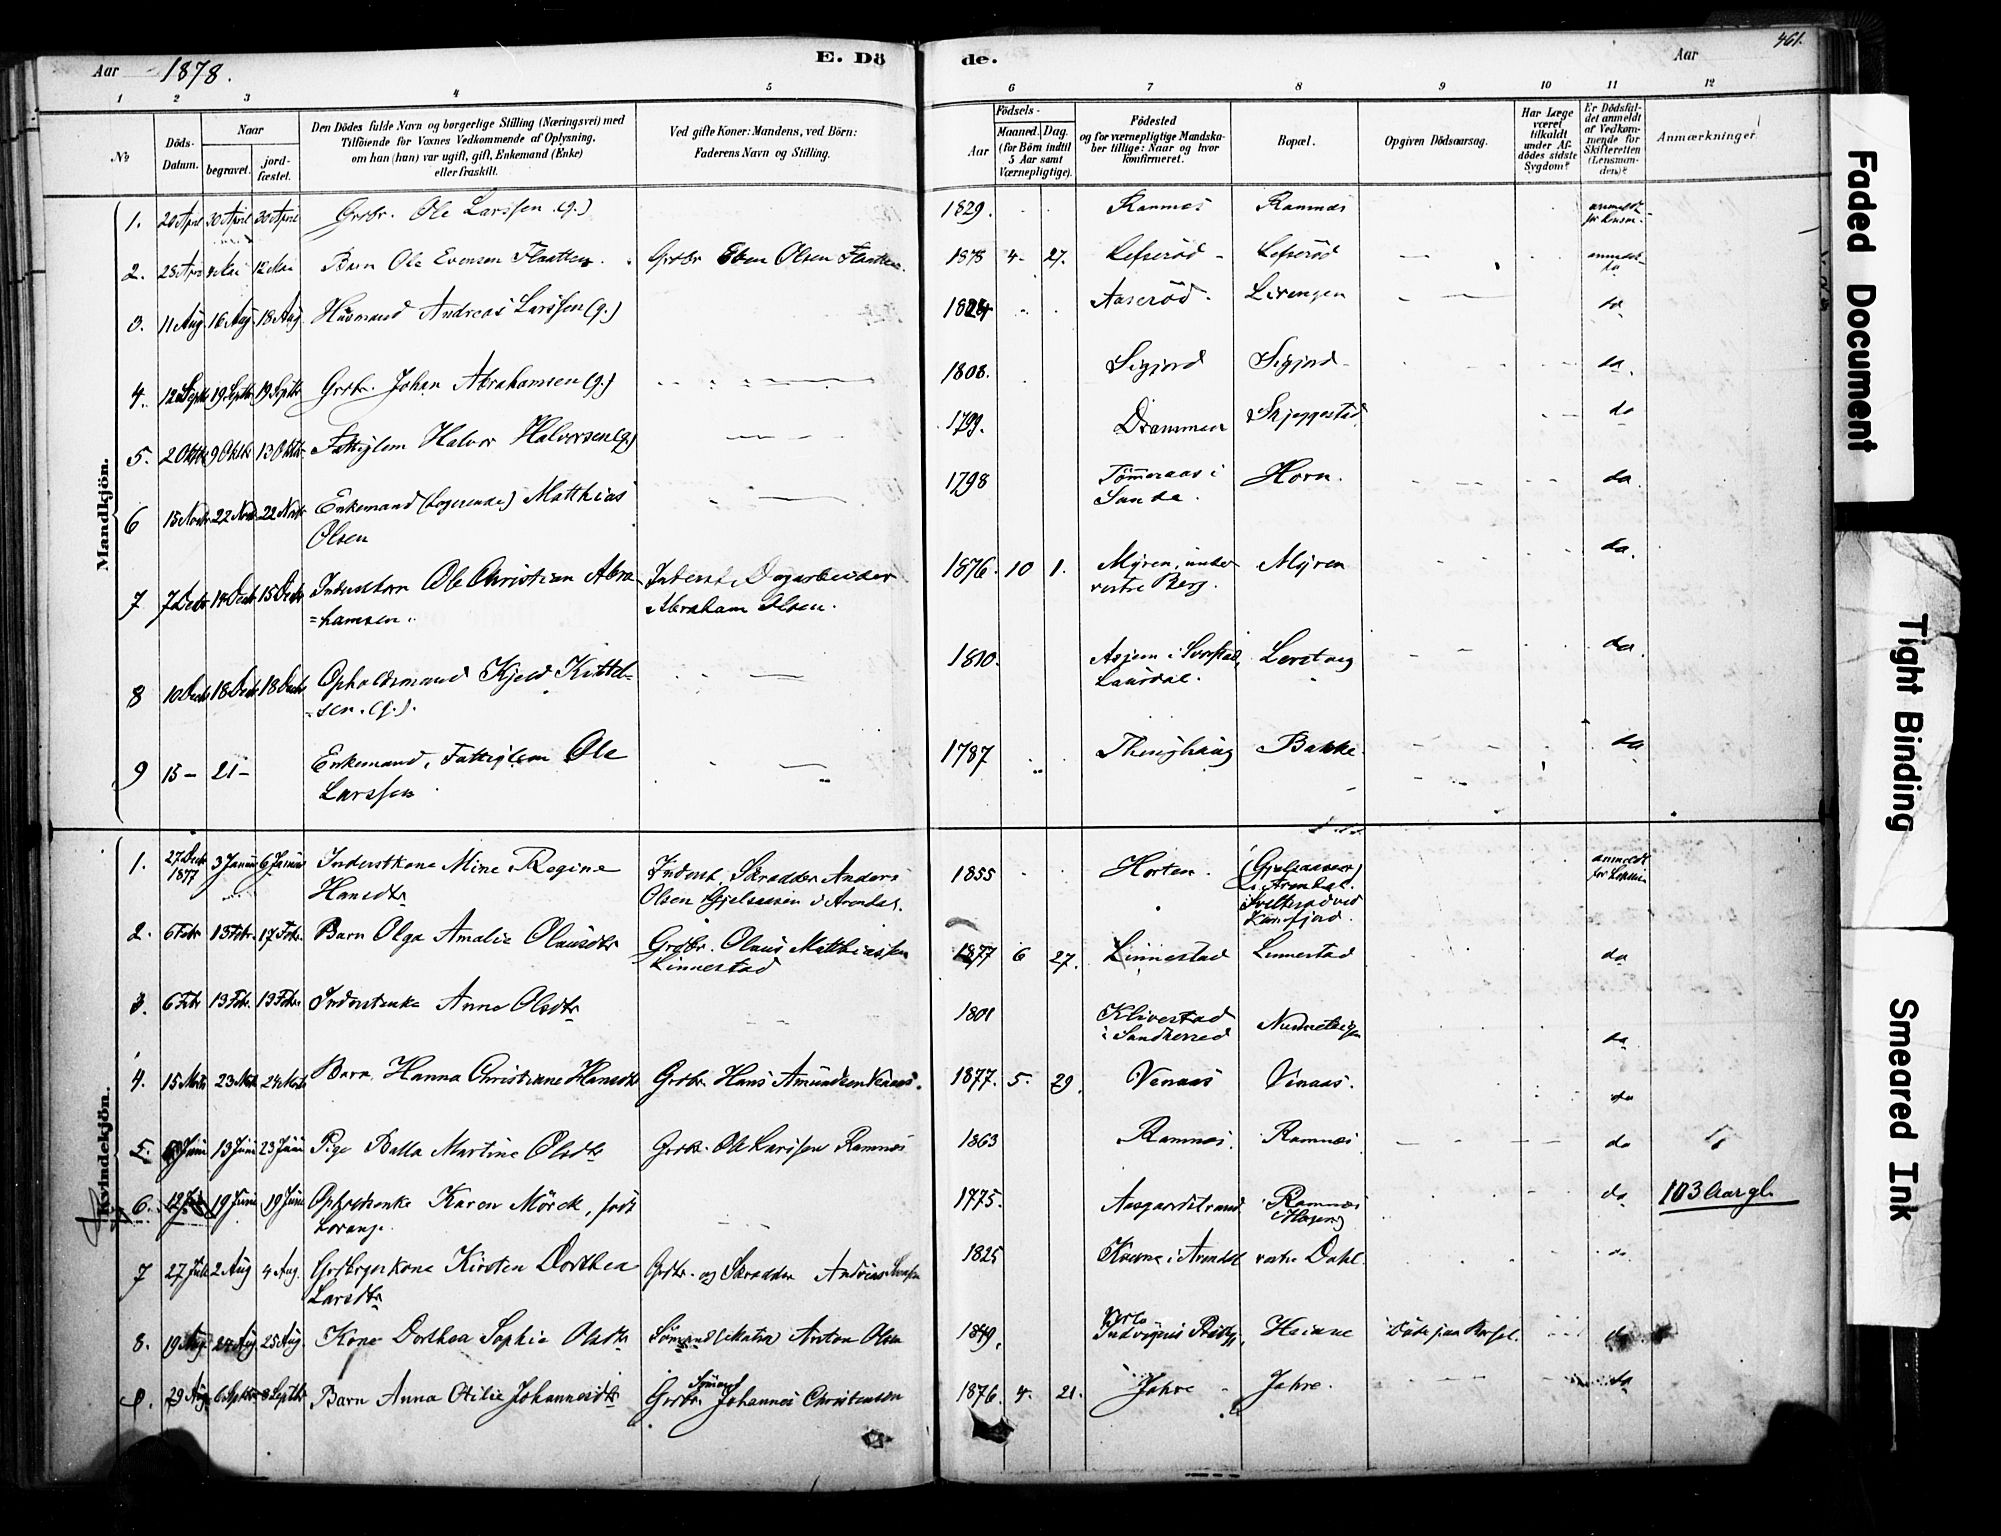 Aar 1878. E. Dö de. Aar 461.
1 2 3 4 5 6 7 8 9 10 11 12
No
Döds-
Datum.
Naar
begravet.
jord-
fæstet.
Den Dödes fulde Navn og borgerlige Stilling (Næringsvei) med
Tilföiende for Voxnes Vedkommende af Oplysning,
om han (hun) var ugift, gift, Enkemand (Enke)
eller fraskilt.
Ved gifte Koner: Mandens, ved Börn:
Faderens Navn og Stilling.
Födsels-
Aar
Maaned. Dag.
(for Börn indtil
5 Aar samt
Værnepligtige).
Födested
og for værnepligtige Mandska-
ber tillige: Naar og hvor
konfirmeret.
Bopæl.
Opgiven Dödsaarsag.
Har Læge
været
tilkaldt
under Af-
dödes sidste
Sygdom?
Er Dödsfal-
det anmeldt
af Vedkom-
mende for
Skifteretten
(Lensman-
den)?
Anmærkninger.
Mandkjön.
1. 20 April 30 April 30 April Grbr. Ole Larssen (g.) 1829. Ramnes Ramnes anmeldt
2. Barn Ole Evensen Flaatten Grbr Even Olsen Flaatten 1878 4- 27. Lefseröd Lefseröd anmeldt
3. 11 Aug 16 Aug 18 Aug Husmand Andreas Larssen (g.) 1824 Aaseröd Lirengen da
4. 12 Septbr 19 Septbr 19 Septbr Grbr. Johan Abrahamsen (g.) 1808. Sigjord Sigjord da.
5. 2 Oktbr 9 Oktbr 13 Oktbr Fattiglem Halvor Halvorsen (g.) 1799. Drammen Skjeggestad da
6 15 Novbr 22 Novbr 22 Novbr Enkemand (Logerende) Matthias 1798 Tømmeraas i Horn. da
Olsen Sande.
7 7 Decbr 14 Decbr 15 Decbr Inderstbarn Ole Christian Abra- Inderst, Dagarbeider 1876. 10 1. Myren, under Myren da.
=hamsen. Abraham Olsen. vestre Berg.
8 10 Decbr 18 Decbr 18 Decbr Opholdsmand Kjeld Kittel- 1810. i Lerstang da
=sen. (g.). Laurdal.
9 15 - 21 - Enkemand, Fattiglem Ole 1787 Bakke da
Larssen
Kvindekjön.
1. 27 Decbr 1877 3 Januar 6 Januar Inderstkone Mine Regine Inderst, Skrædder Anders 1855 Horten. (Gjelsaasen) anmeldt
Hansdtr Olsen Gjelsaasen i Arendal. i Arendal.
2. 6 Febr 13 Febr. 17 Febr. Barn Olga Amalie Olausdtr Grbr. Olaus Matthiassen 1877 6 27. Linnestad Linnestad da
Linnestad
3. 6 Febr 13 Febr. 13 Febr. Inderstenke Anne Olsdtr 1801 Klivestad da
i Sandherred
4. 15 Marts 23 Marts 24 Marts Barn Hanna Christiane Hansdtr Grbr. Hans Amundsen Venaas. 1877. 5. 29. Venaas Venaas. da
5. 13 Juni 23 Juni Pige Balla Martine Olsdtr Grbr. Ole Larssen Ramnes 1863 Ramnes. Ramnes da
6. 19 Juni 19 Juni Opholdsenke Karen Mörck, født 1775. Aasgaardstrand Ramnes da 103 Aar gl.
Lorange
7 27 Juli 2 Aug 4 Aug. Grbrgerkone Kirsten Dorthea Grbr. og Skrædder Andreas 1825 i Arendal vestre Dahl. da
Larsdtr
8. 19 Aug. 24 Aug 25 Aug. Kone Dorthea Sophie Olsdtr Sømand (Matr) Anton Olsen 1849, Heiane Döde paa Barsel. da
9. 29 Aug. 6 Septbr 8 Septbr Barn Anna Otilie Johannesdtr Grbr. Sømand Johannes Christensen 1876. 4. 21. Jahre Jahre. da
Faded Document
Tight Binding
Smeared Ink